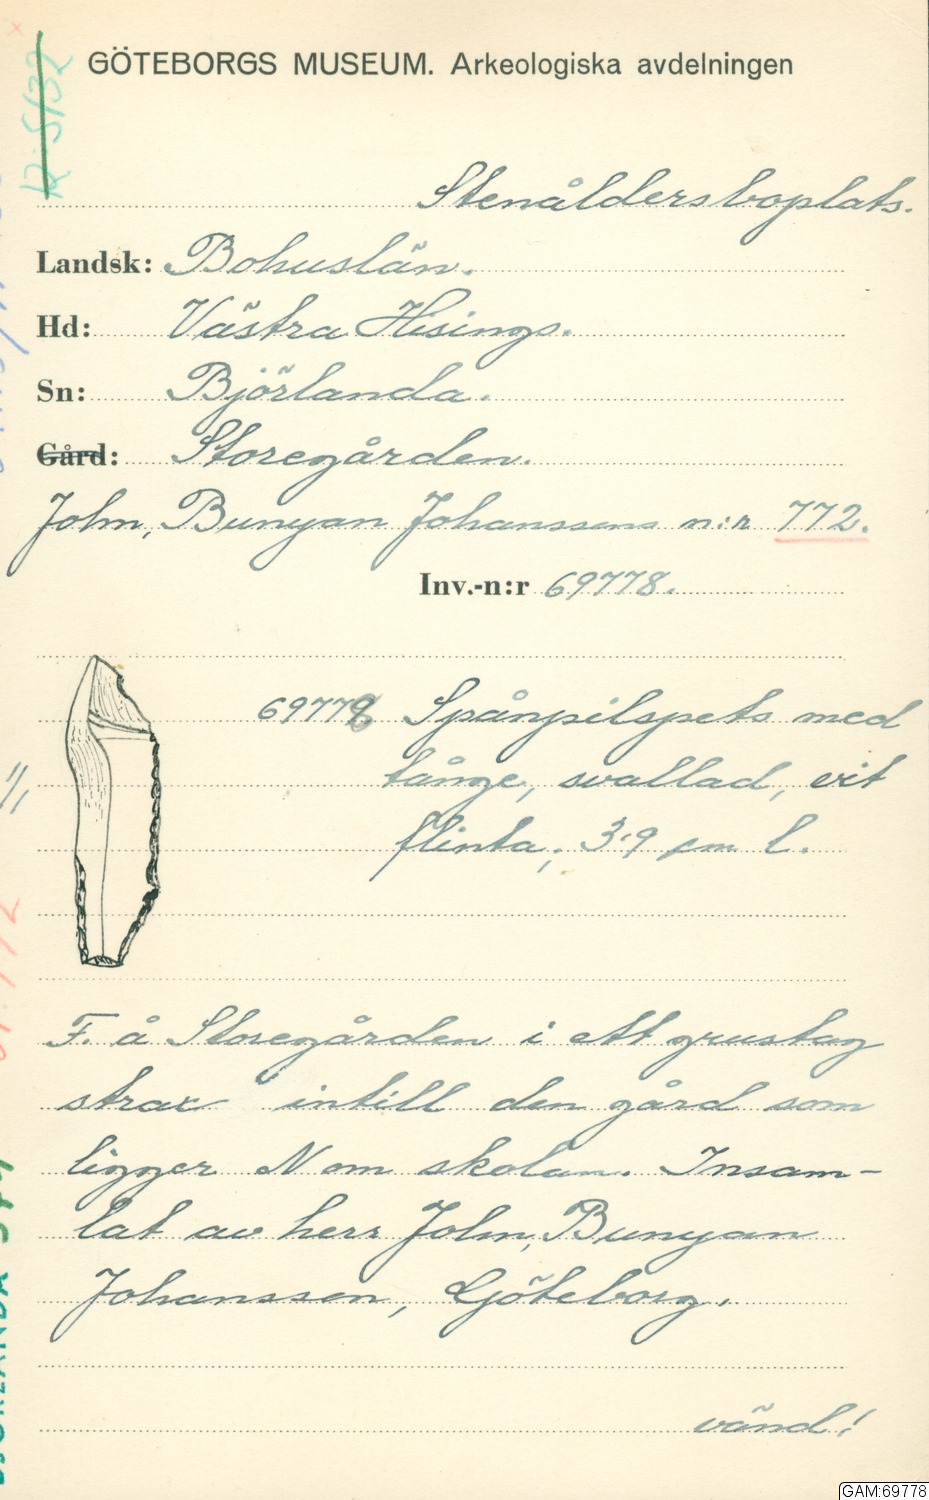 12:5/32
GÖTEBORGS MUSEUM. Arkeologiska avdelningen
Stenåldersboplats.
Landsk: Bohuslän.
Hd: Västra Hisings.
Sn: Björlanda.
Gård: Storegården.
John, Bunyan Johanssons n:r 772.
Inv.-n:r 69778.
69778 Spånpilspets med
tånge, svallad, vit
flinta; 3,9 cm l.
1/1
F. å Storegården i ett grustag
strax intill den gård som
ligger N om skolan. Insam-
lat av herr John, Bunyan
Johansson, Göteborg.
vänd!
BJÖRLANDA
GAM:69778